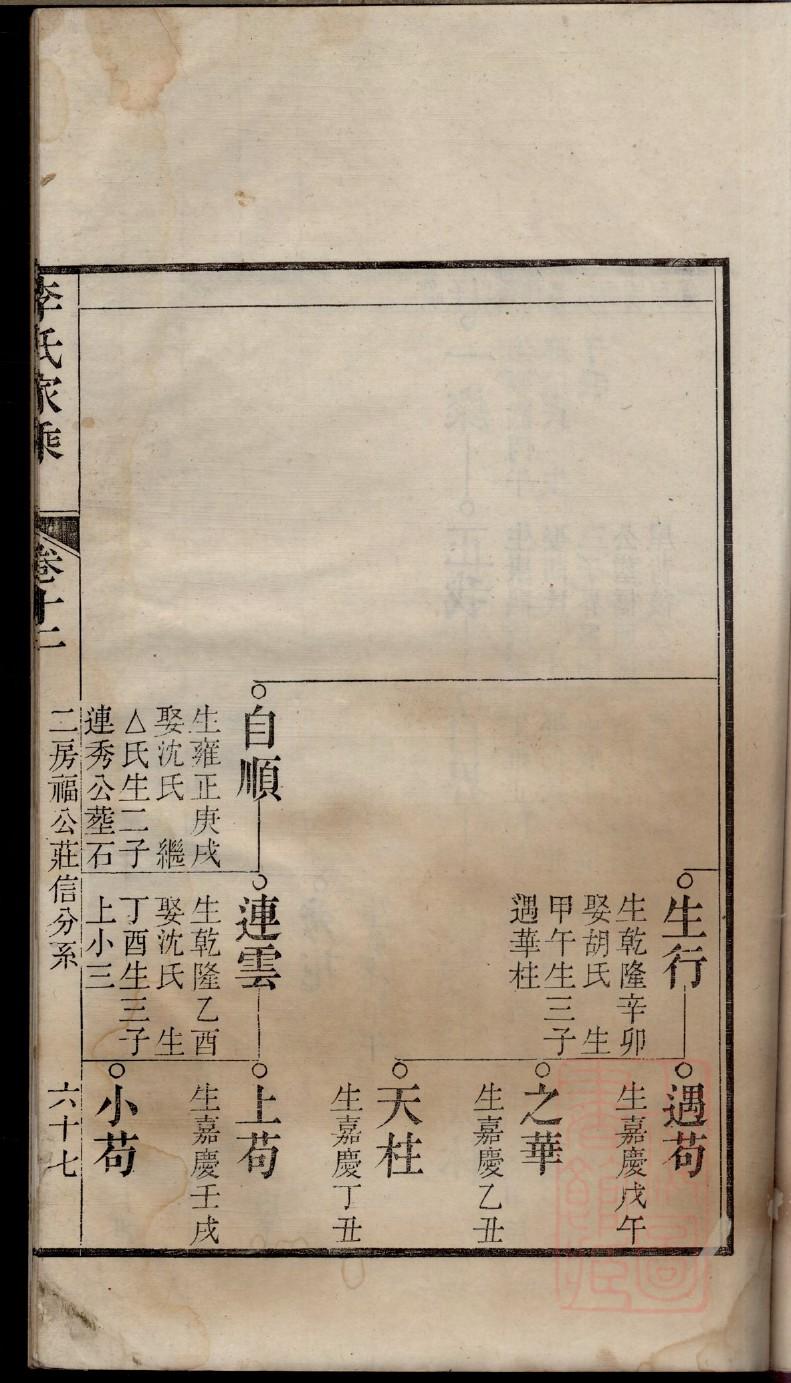 生行
生乾隆辛卯
娶胡氏　生
甲午生三子
遇華柱
遇苟
生嘉慶戊午
之華
生嘉慶乙丑
天柱
生嘉慶丁丑
自順
生雍正庚戌
娶沈氏　繼
△氏生二子
連秀公塟石
連雲
生乾隆乙酉
娶沈氏　生
丁酉生三子
上小三
上苟
生嘉慶壬戌
小苟
二房福公莊信分系　六十七
李氏家乘　卷十二